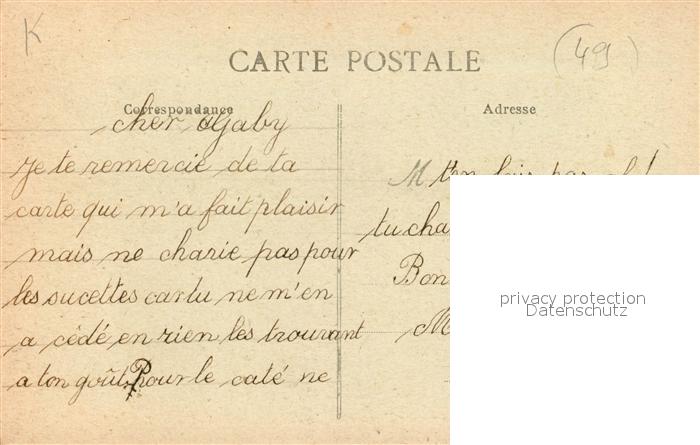 K
(49)
CARTE POSTALE
Correspondance
Adresse
cher Gaby
Je te remercie de ta
carte qui m'a fait plaisir
mais ne charie pas pour
les sucettes car tu ne m'en
a cédé en rien les trouvant
a ton goût. Pour le caté ne
M t'en fais pas
tu cha
Bon
M
privacy protection
Datenschutz